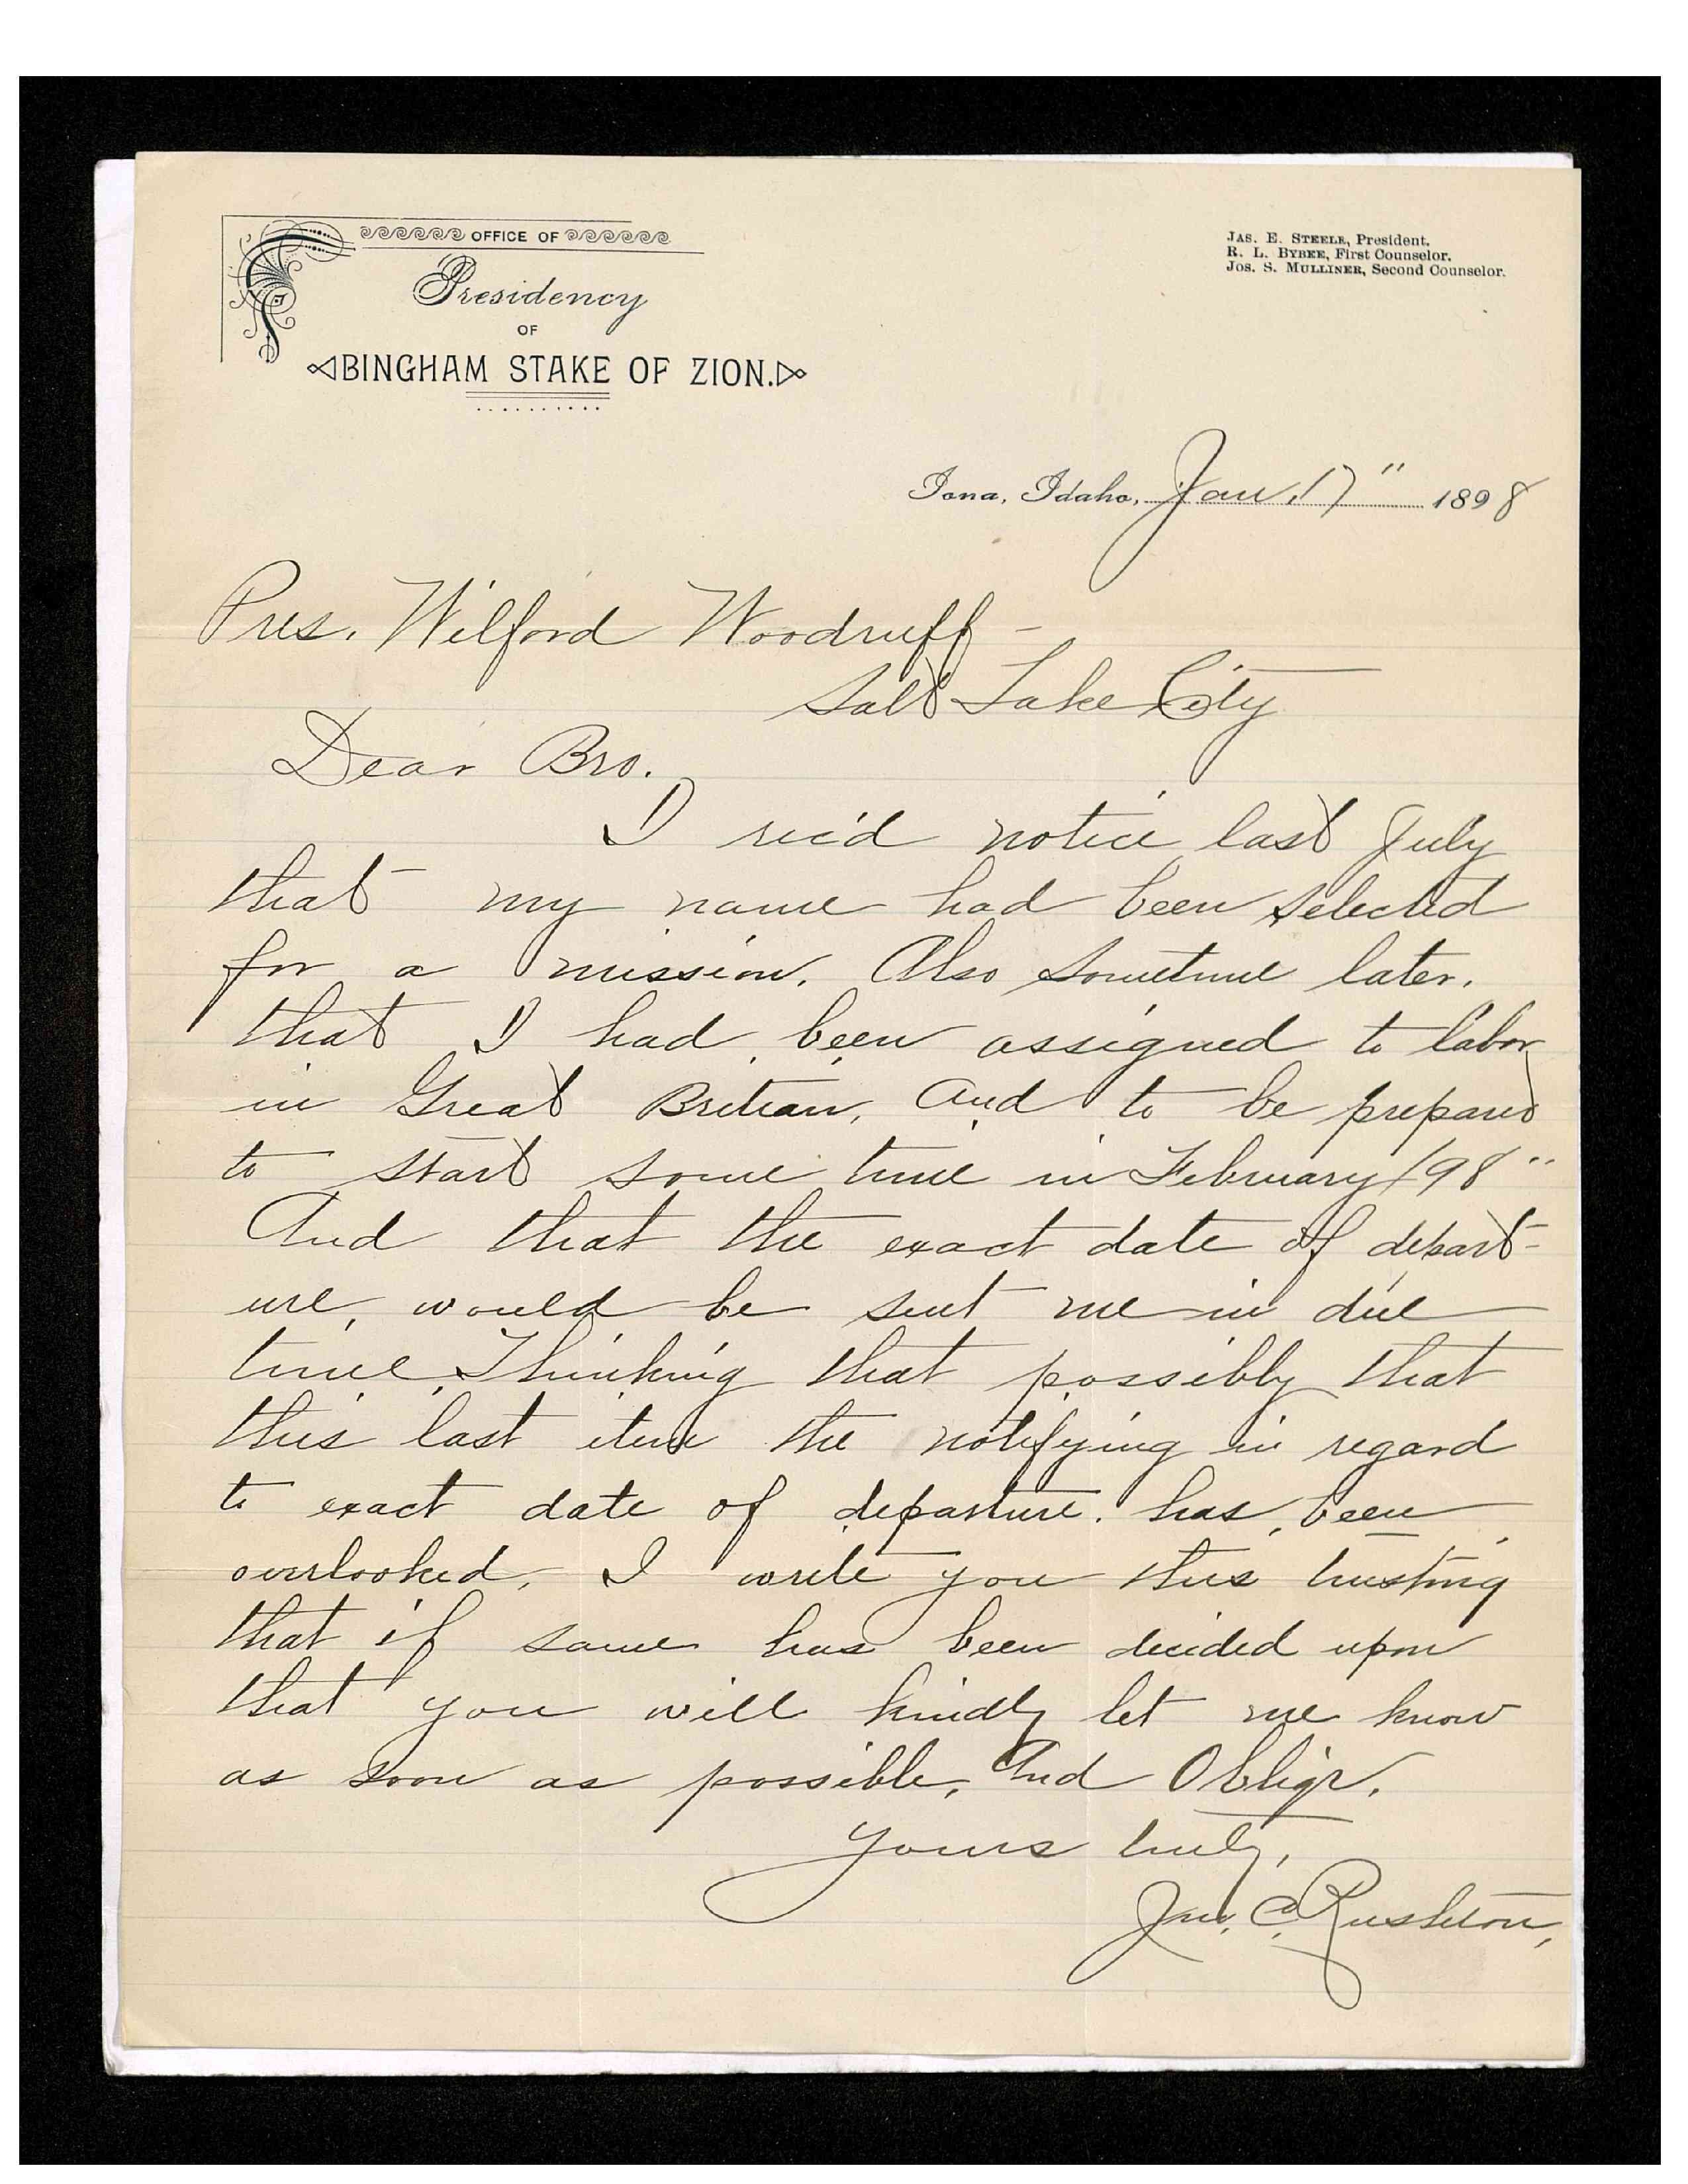 OFFICE OF
Presidency
OF
BINGHAM STAKE OF ZION.
JAS. E. STEELE, President.
R. L. BYBEE, First Counselor.
JOS. S. MULLINER, Second Counselor.
Iona, Idaho, Jan. 17" 1898
Pres. Wilford Woodruff -
Salt Lake City
Dear Bro.
I rec'd notice last July
that my name had been selected
for a mission. Also sometime later.
that I had been assigned to labor
in Great Britian, And to be prepared
to start some time in February /98"
And that the exact date of depart-
ure, would be sent me in due
time. Thinking that possibly that
this last item the notifying in regard
to exact date of departure. has, been
overlooked, I write you this trusting
that if same has been decided upon
that you will kindly let me know
as soon as possible, And Oblige.
Yours truly,
Jno. C. Rushton,